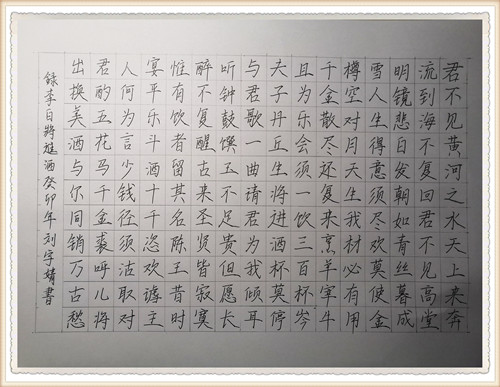 君不见黄河之水天上来奔
流到海不复回君不见高堂
明镜悲白发朝如青丝暮成
雪人生得意须尽欢莫使金
樽空对月天生我材必有用
千金散尽还复来烹羊宰牛
且为乐会须一饮三百杯岑
夫子丹丘生将进酒杯莫停
与君歌一曲请君为我倾耳
听钟鼓馔玉不足贵但愿长
醉不复醒古来圣贤皆寂寞
惟有饮者留其名陈王昔时
宴平乐斗酒十千恣欢谑主
人何为言少钱径须沽取对
君酌五花马千金裘呼儿将
出换美酒与尔同销万古愁
録李白將進酒癸卯年刘宇婧書